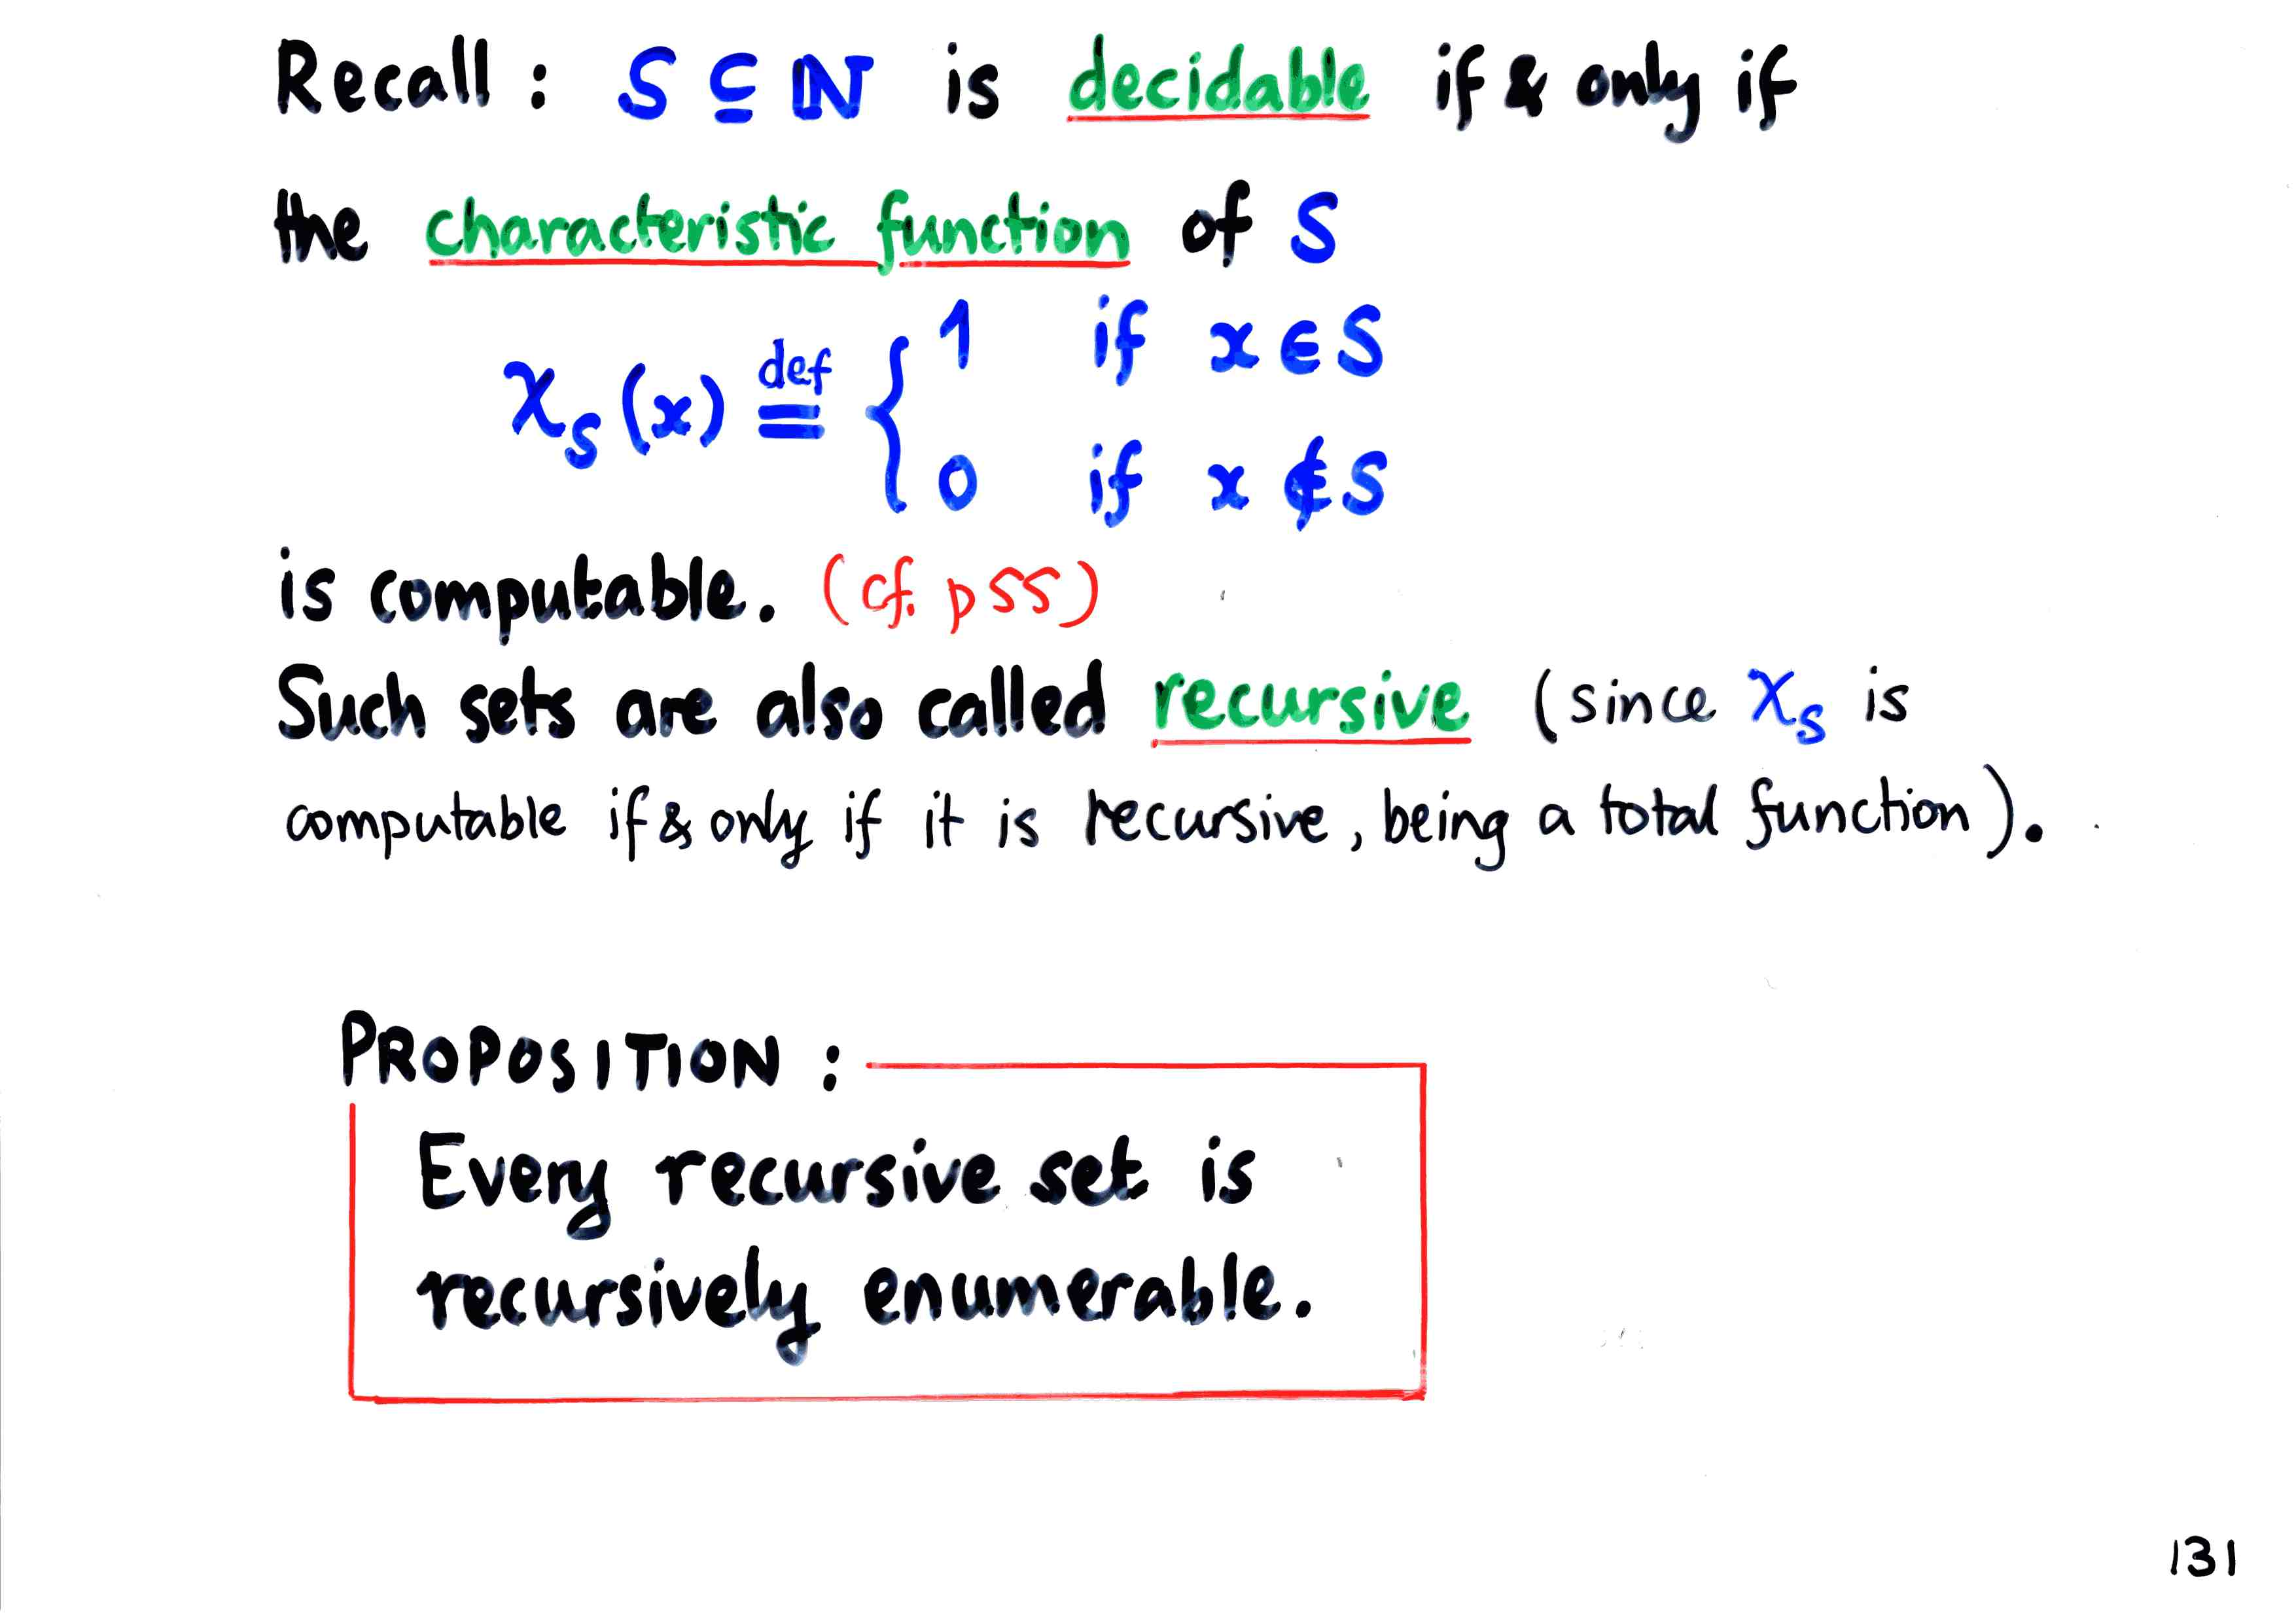 Recall : S ⊆ ℕ is decidable if & only if
the characteristic function of S
χ_S(x) def= { 1 if x ∈ S
0 if x ∉ S
is computable. (cf. p 55)
Such sets are also called recursive (since χ_S is
computable if & only if it is recursive, being a total function).
PROPOSITION :
Every recursive set is
recursively enumerable.
131